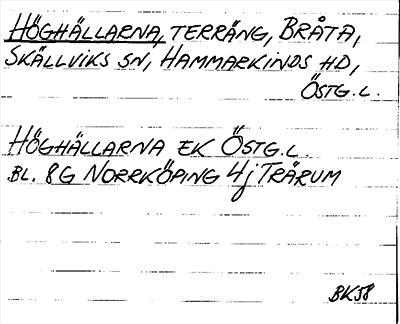 HÖGHÄLLARNA, TERRÄNG, BRÅTA,
SKÄLLVIKS SN, HAMMARKINDS HD,
ÖSTG. L.
HÖGHÄLLARNA EK ÖSTG. L.
BL. 8G NORRKÖPING 4j TRÄRUM
BK58